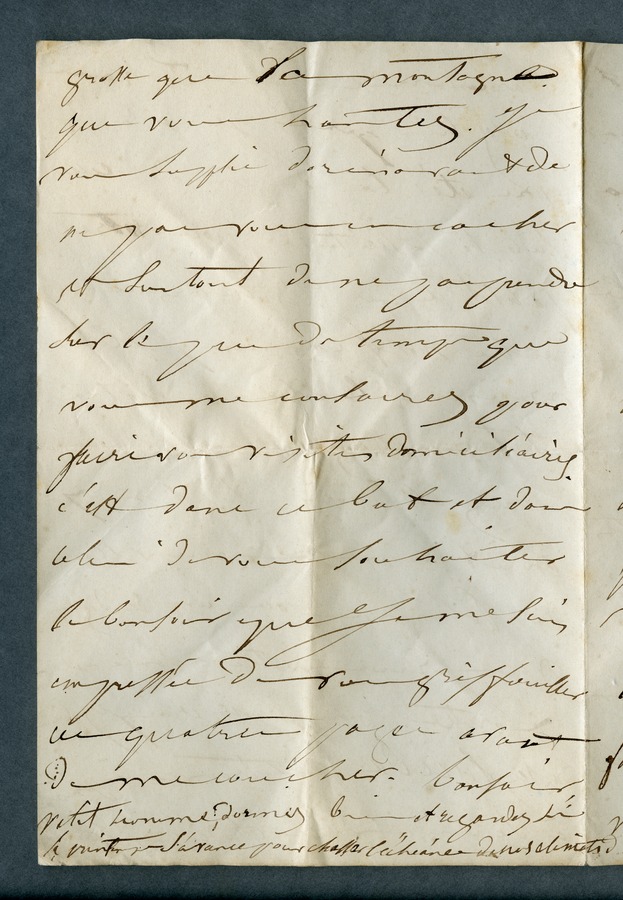 grosse que la montagne
que vous hantez. Je
vous supplie dorénavant de
ne pas vous en cacher
et surtout de ne pas perdre
le peu de temps que
vous me consacrez pour
faire vos visites domiciliaires
c'est dans ce but et dans
celui de vous souhaiter
le bonsoir que je me suis
empressée de vous griffouiller
ces quatre pages avant
de me coucher. bonsoir,
petit homme, dormez bien et regardez
le d'avance pour chasser de nos